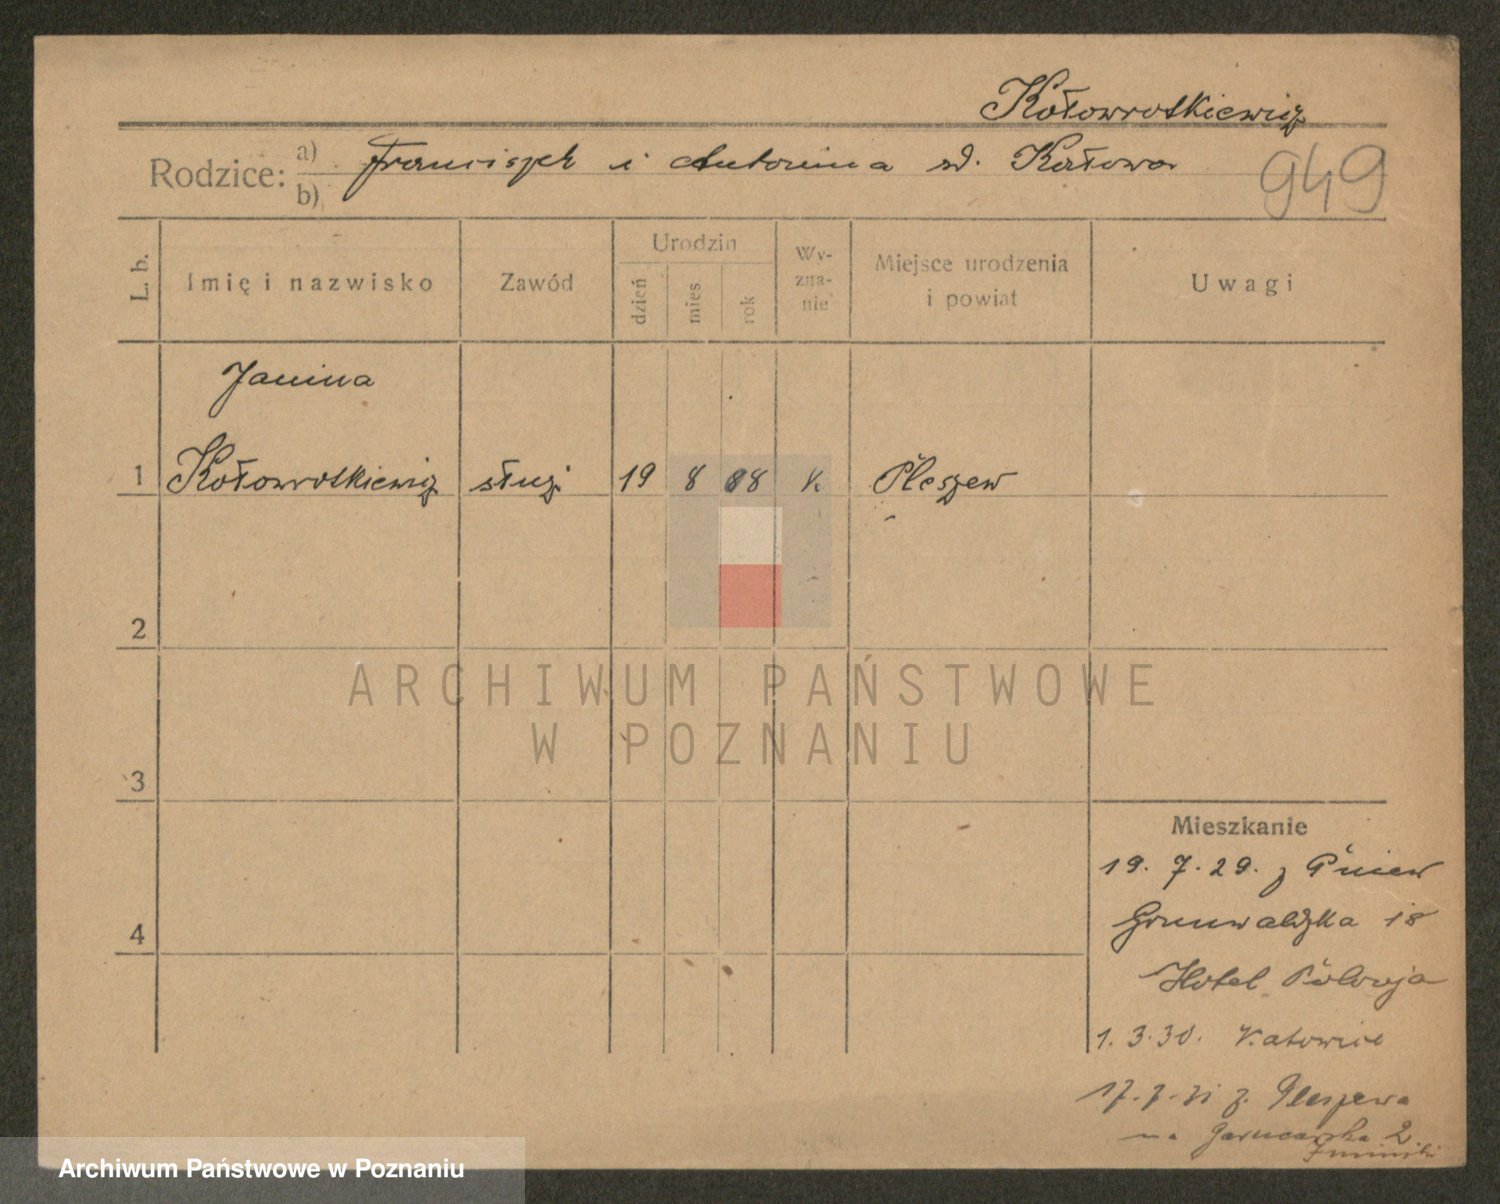 Kołowrotkiewicz
Rodzice: a) Franciszek i Antonina
b)
949
L. b.
Imię i nazwisko
Zawód
Urodzin
dzień
mies
rok
Wy-
zna-
nie
Miejsce urodzenia
i powiat
Uwagi
Janina
1 Kołowrotkiewicz służ. 19 8 88 K Pleszew
2
3
4
ARCHIWUM PAŃSTWOWE
W POZNANIU
Mieszkanie
19. 7. 29. z Pniew
Grunwaldzka 18
Hotel Polonja
1. 3. 30. Katowice
z Pleszewa
na Garncarska 2
Archiwum Państwowe w Poznaniu